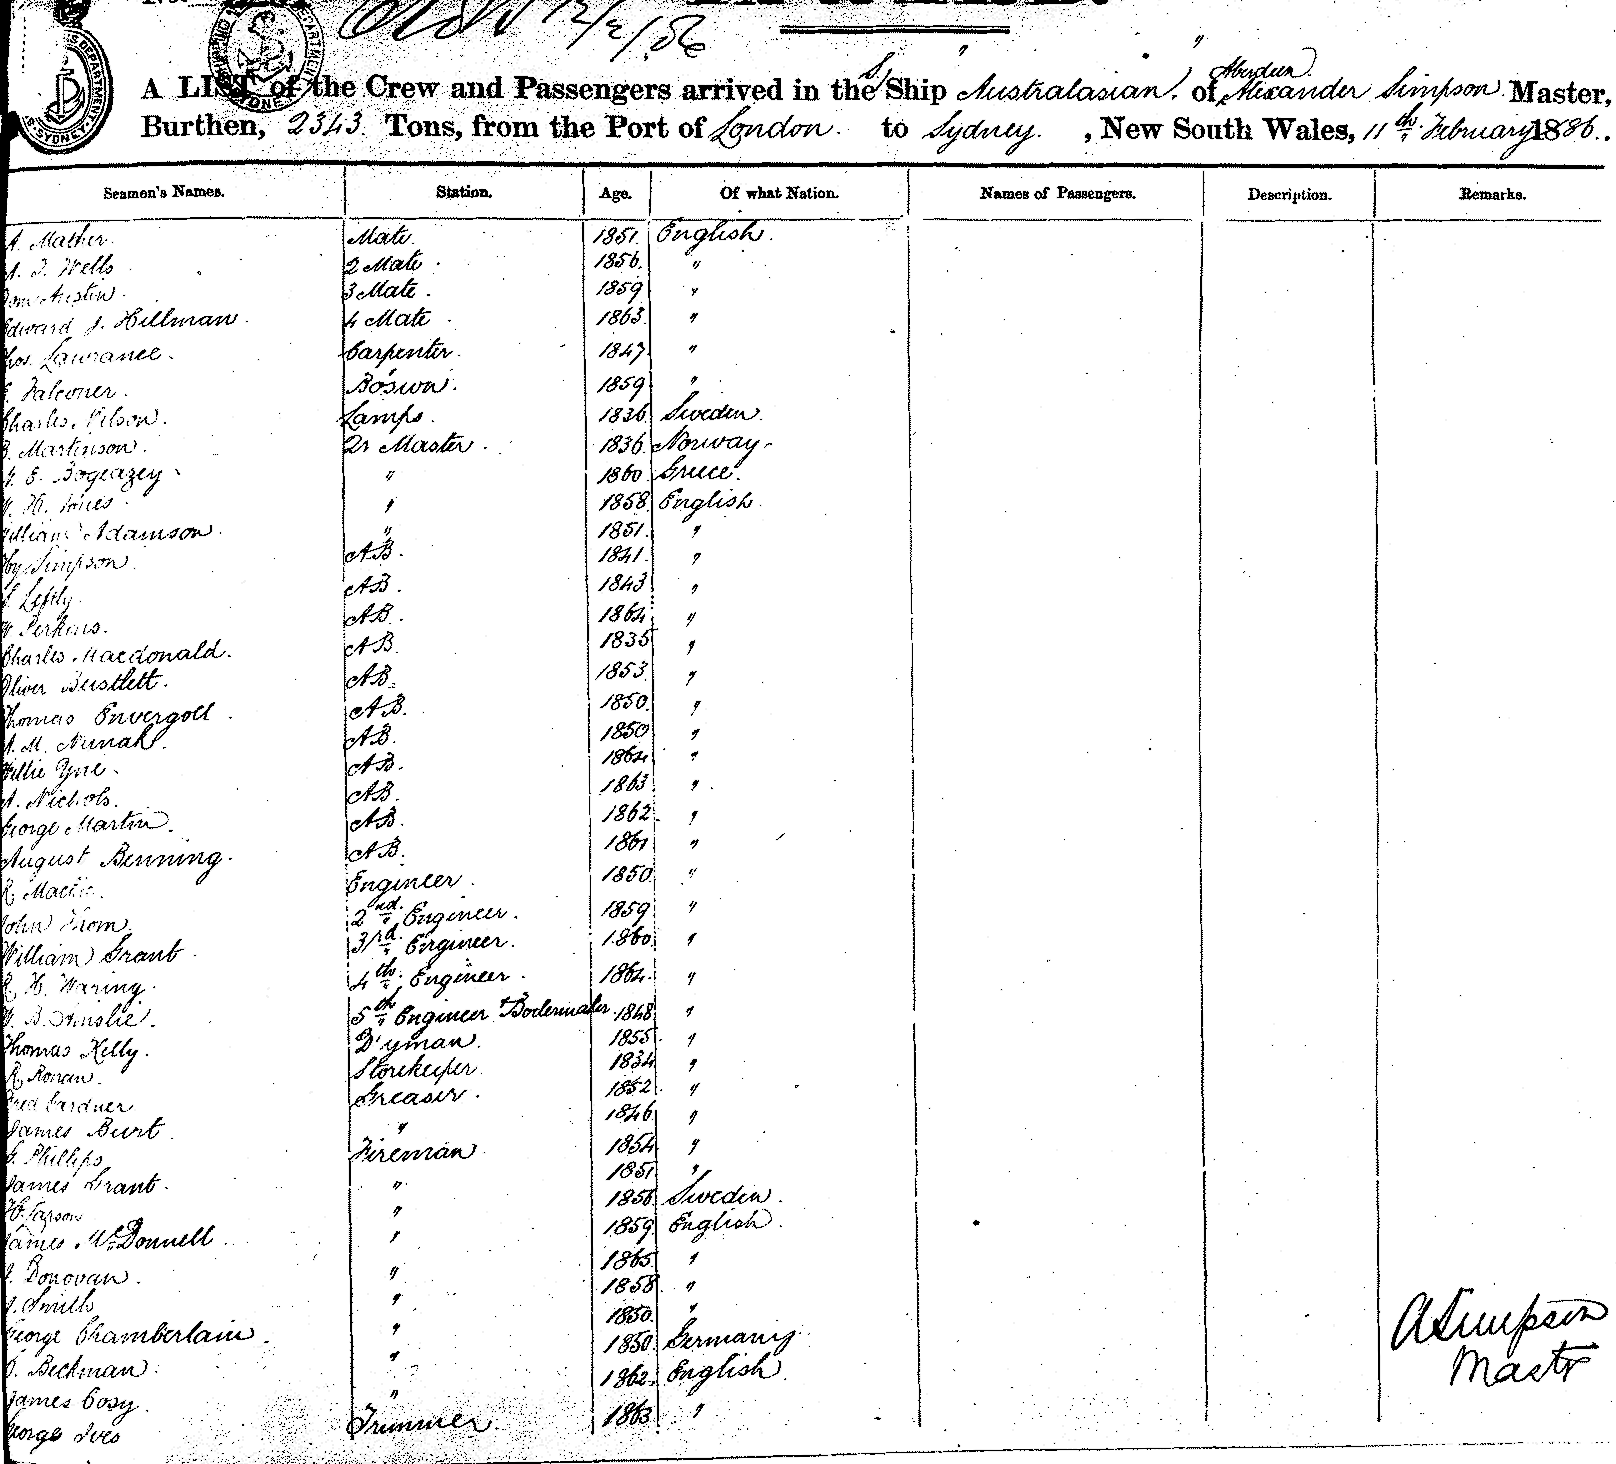 12/2/86
Aberdeen
A LIST of the Crew and Passengers arrived in the S/ Ship Australasian. of Alexander Simpson Master,
Burthen, 2343 Tons, from the Port of London. to Sydney. , New South Wales, 11th February 1886.
Seamen's Names. Station. Age. Of what Nation. Names of Passengers. Description. Remarks.
A. Mather. Mate. 1851. English.
Wells 2 Mate. 1856. "
Austin. 3 Mate. 1859 "
Edward J. Hillman. 4 Mate 1863 "
Thos. Lawrance. Carpenter. 1847 "
Falconer. Boswn. 1859 "
Charles Nilson. Lamps. 1836 Sweden.
Martinson. Qr Master. 1836 Norway.
Bogeazey " 1860 Greece.
H. Jones " 1858 English
William Adamson. " 1851. "
Hy Simpson. AB. 1841. "
Leftly. AB. 1843 "
W Perkins. AB. 1864. "
Charles Macdonald. AB. 1835 "
Oliver Bustlett. AB. 1853. "
Thomas Envergoll. AB. 1850. "
A. M. AB. 1850 "
Willie Pyne. AB. 1864 "
A. Nichols. AB. 1863 "
George Martin. AB. 1862. "
August Benning. AB. 1861 "
R. Engineer. 1850 "
John Thom. 2nd. Engineer. 1859 "
William Grant 3rd. Engineer. 1860 "
R. H. Waring. 4th. Engineer. 1864. "
W. B. Ainslie. 5th Engineer & Boilermaker 1848 "
Thomas Kelly. D'yman. 1855. "
R. Ronan. Storekeeper 1834 "
Fred Gardner Greaser. 1852. "
James Burt. " 1846 "
G. Phillips Fireman 1854 "
James Grant. " 1851 "
Larson " 1856 Sweden.
James McDonnell. " 1859 English.
J. Donovan. " 1865 "
J. Smith " 1858. "
George Chamberlain. " 1850. "
Beckman. " 1850 Germany.
James Cosy. " 1862. English.
George Ives Trimmer. 1863 "
A Simpson
Mastr